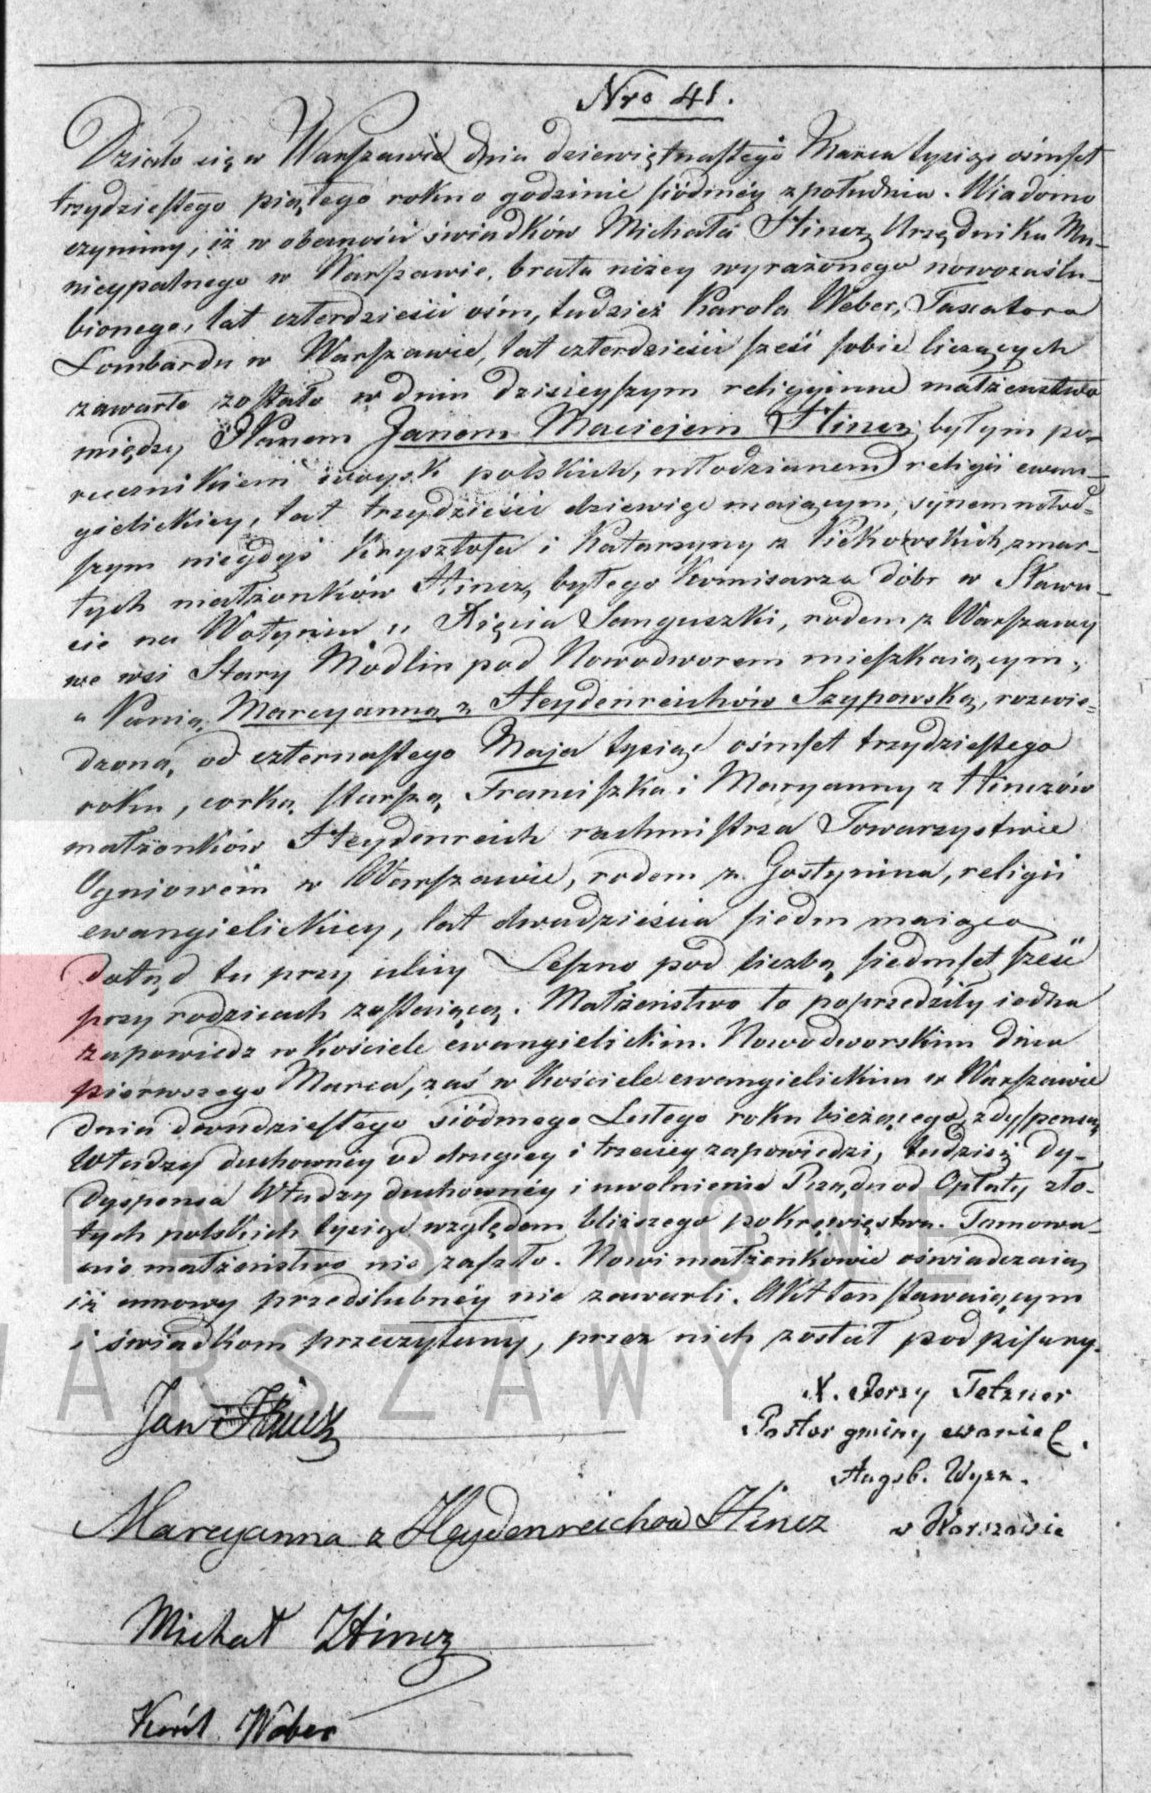 Nro 41.
Działo się w Warszawie dnia dziewiętnastego Marca tysiąc ośmset
trzydziestego piątego roku o godzinie siódméy z południa. Wiadomo
czynimy, iż w obecności świadków Michała Hincz Urzędnika Mu-
nicypalnego w Warszawie, brata niżey wyrażonego nowozaślu-
bionego, lat czterdzieści ośm, tudzież Karola Weber, Taxatora
Lombardu w Warszawie, lat czterdzieści sześć sobie liczących
zawarte zostało w dniu dzisieyszym religiyine małżeństwo
między Panem Janem Maciejem Hincz, byłym po-
rucznikiem woysk polskich, młodzianem religii ewan-
gielickiey, lat trzydzieści dziewięć maiącym, synem młod-
szym niegdyś Krysztofa i Katarzyny z zmar-
łych małżonków Hincz, byłego Komisarza dóbr w Sławu-
cie na Wołyniu u Xięcia Sanguszki, rodem z Warszawy
we wsi Stary Modlin pod Nowodworem mieszkaiącym,
a Panią Maryanną z Heydenreichów Szypowską, rozwie-
dzoną od czternastego Maja tysiąc ośmset trzydziestego
roku, corką starszą Franciszka i Maryanny z Hinczów
małżonków Heydenreich rachmistrza Towarzystwie
Ogniowém w Warszawie, rodem z Gostynina, religii
ewangielickiey, lat dwadzieścia siedm maiąca
dotąd tu przy ulicy Leszno pod liczbą siedmset sześć
przy rodzicach zostaiącą. Małżeństwo to poprzedziły iedna
zapowiedz w Kościele ewangielickim Nowodworskim dnia
pierwszego Marca, zaś w Kościele ewangielickim w Warszawie
dnia dwudziestego siódmego Lutego roku bieżącego, z dyspensą
Władzy duchownéy od drugiey i trzeciey zapowiedzi, tudzież Dy-
dyspensa Władzy duchownéy i uwolnienie Rządu od Opłaty zło-
tych polskich tysiąc względem bliższego pokrewięstwa. Tamowa-
nie małżeństwo nie zaszło. Nowi małżonkowie oświadczaią
iż umowy przedślubnéy nie zawarli. Akt ten stawaiącym
i świadkom przeczytany, przez nich został podpisany.
Jan Hincz
X. Jerzy Tetzner
Pastor gminy ewaniel.
Augsb. Wyzn.
w Warszawie
Maryanna z Heydenreichow Hincz
Michał Hincz
Karól Weber
PAŃSTWOWE
WARSZAWY